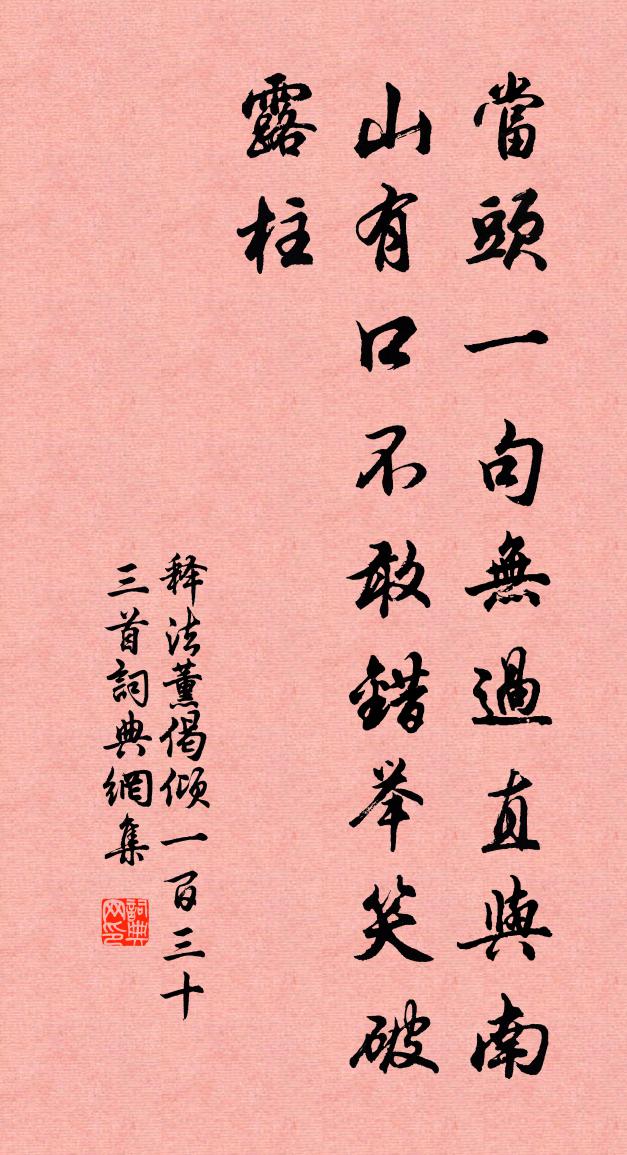 當頭一句無過直與南
山有口不敢錯举笑破
露柱
释法薰偈倾一百三十
三首詞典網集
詞典网印